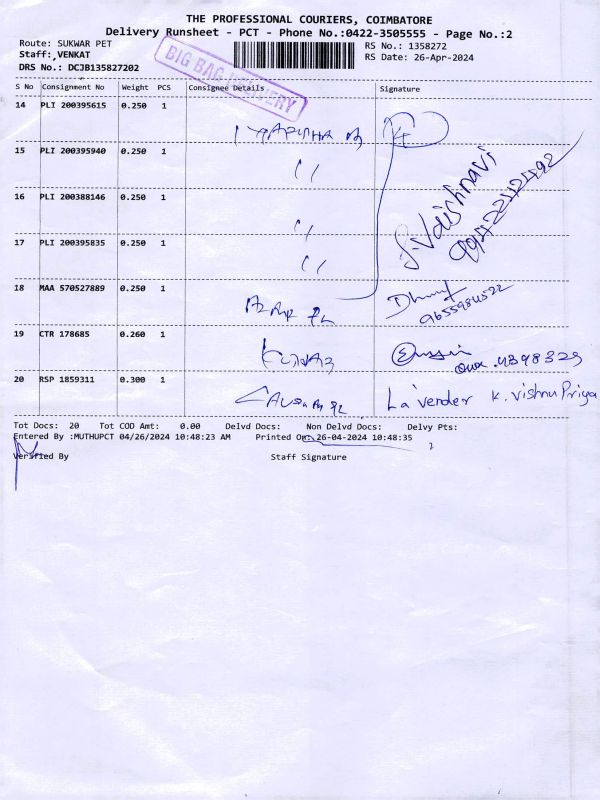 THE PROFESSIONAL COURIERS, COIMBATORE
Delivery Runsheet - PCT - Phone No.:0422-3505555 - Page No.:2
Route: SUKWAR PET
RS No.: 1358272
Staff: VENKAT
RS Date: 26-Apr-2024
DRS No.: DCJB135827202
BIG BAG DELIVERY
S No Consignment No Weight PCS Consignee Details Signature
14 PLI 200395615 0.250 1
15 PLI 200395940 0.250 1
16 PLI 200388146 0.250 1
17 PLI 200395835 0.250 1
S.Vaishnavi
18 MAA 570527889 0.250 1
19 CTR 178685 0.260 1
20 RSP 1859311 0.300 1 Lavender K. Vishnu Priya
Tot Docs: 20 Tot COD Amt: 0.00 Delvd Docs: Non Delvd Docs: Delvy Pts:
Entered By :MUTHUPCT 04/26/2024 10:48:23 AM Printed On: 26-04-2024 10:48:35
Verified By Staff Signature